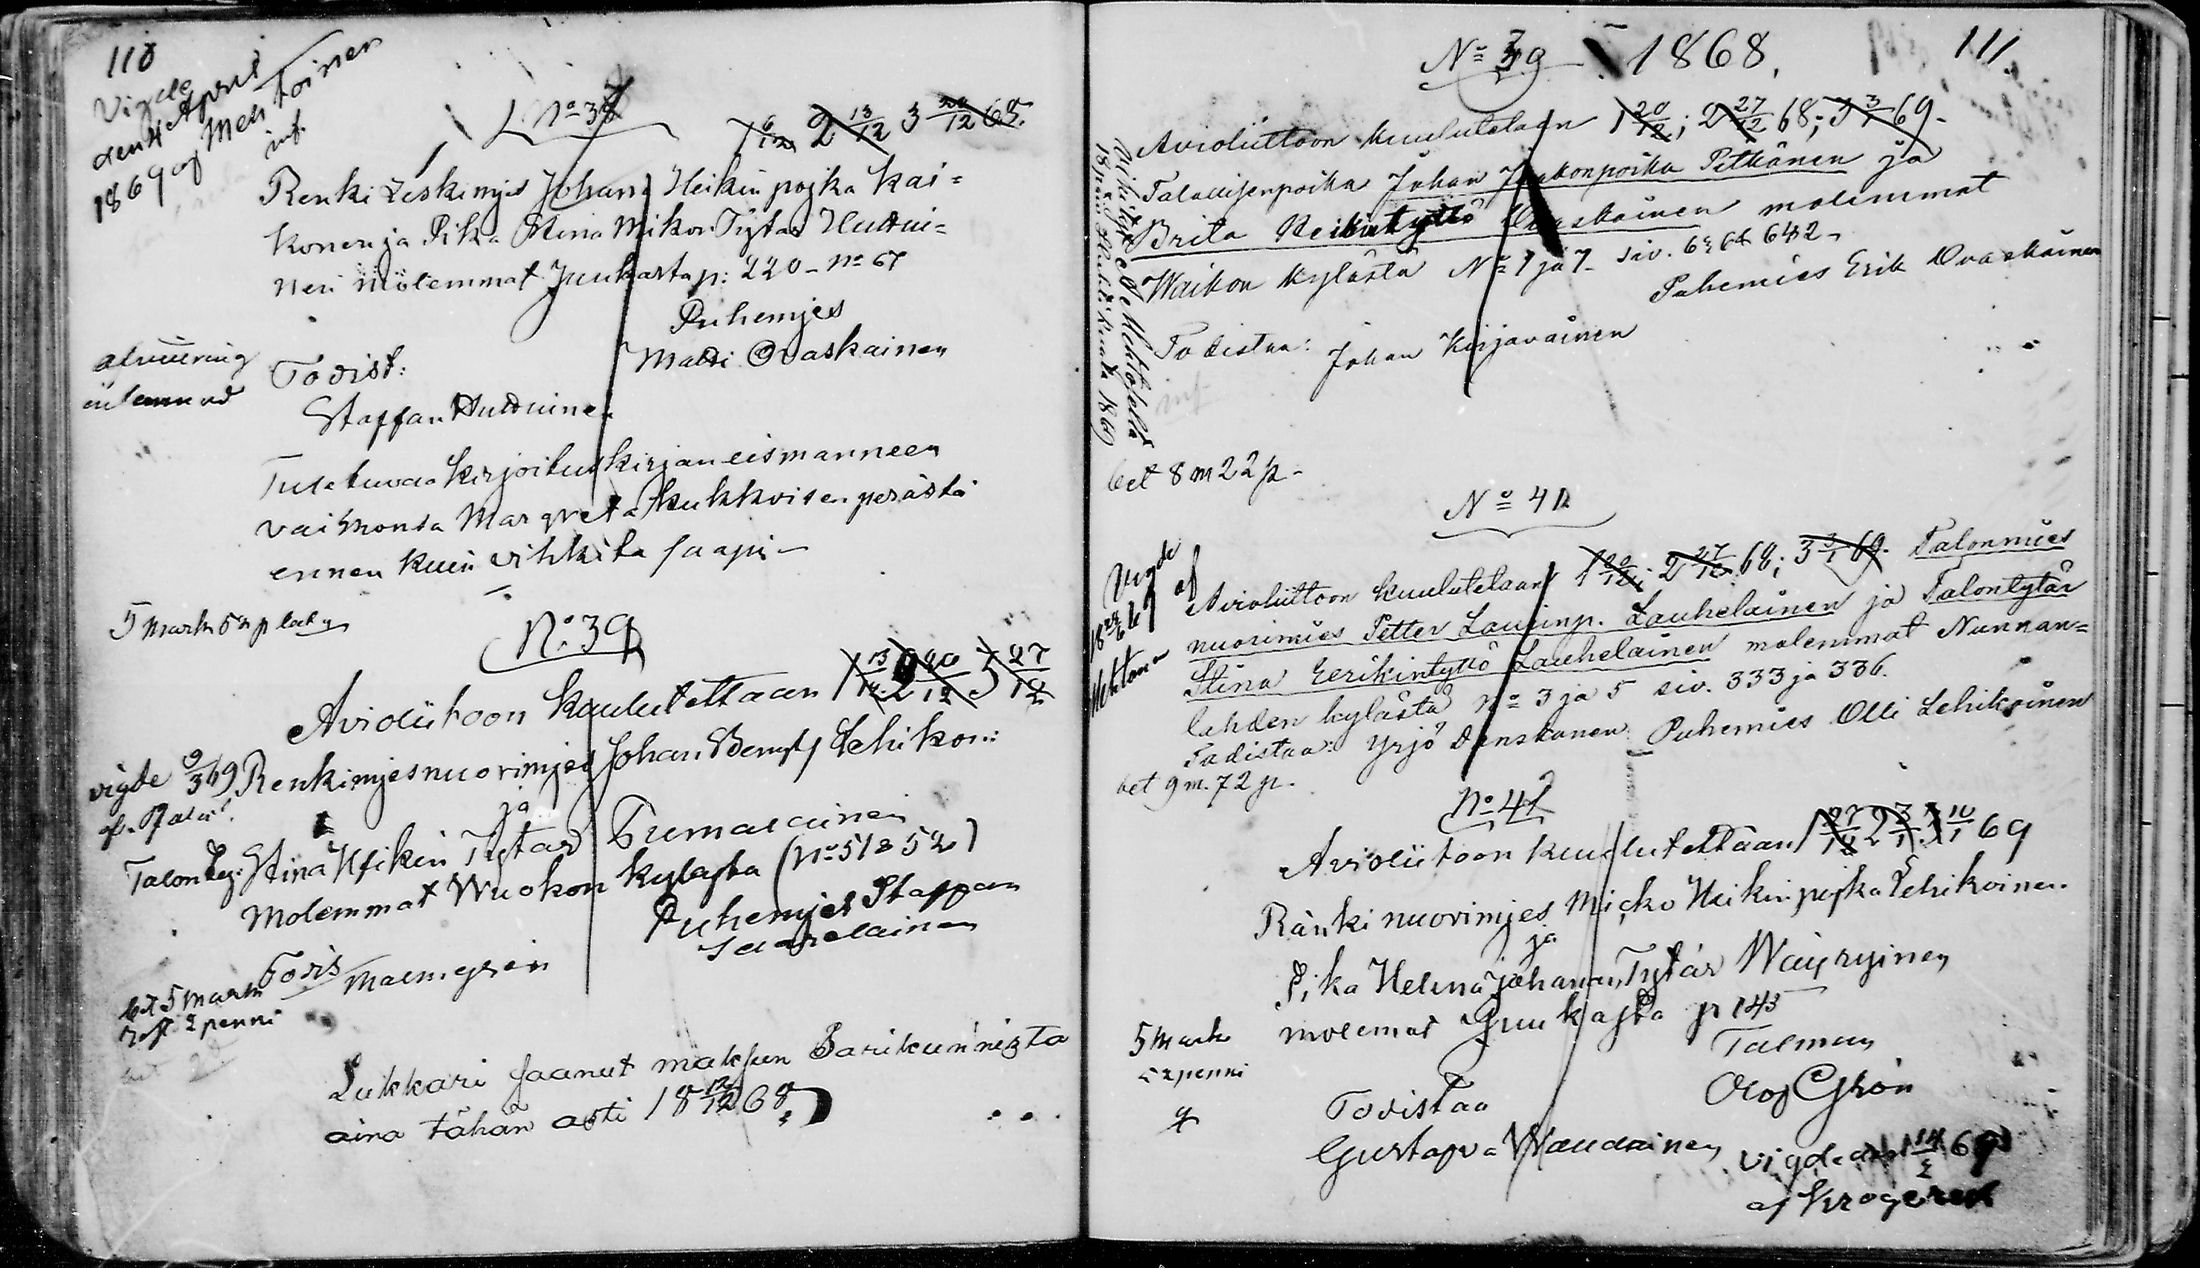 110
Vigde
den 4 April
1869 af Mentoinen
inf.
No 37
1 6/12 2 13/12 3 20/12 68.
Renki Leskimjes Johan Heikin pojka Kai=
konen ja Pika Stina Mikon Tytar Huttui=
nen Mölemmat Juukasta p: 220 - No 67
Puhemjes
Matti Ovaskainen
afvittring
inlemnad
Todist:
Staffan Huttuinen
Tuletuvaa kirjoitus kirjan eismanneen
vaimonsa Margreta Kukkoisen perästä
ennen kuin vihkitä saapi -
5 mark 52 p
No 39
Aviolütoon Kuulutettaan 1 13/12 2 20/12 3 27/12
vigde 9/3 69
Renkimjes nuorimjes Johan Lehikoin:
ja
Talon Stina Heikin Tytar Turmalainen
Molemmat Wuokon kylasta (No 51 & 52)
Puhemjes Staffan
Saarelainen
Todis Malmgren
bet 5 mark
2 penni
Lukkari saanut maksun Parikunnista
aina tähän asti 18 12/12 68.
111.
No 39 1868.
Avioliittoon kuulutetaan 1 20/12; 2 27/12 68; 3 3/1 69.
Talollisenpoika Johan Jaakonpoika Petkänen ja
Brita Heikintyttö Ovaskainen molemmat
Waikon kylästä No 1 ja 7 siv. 642
Puhemies Erik Ovaskainen
Todistaa:
Johan Kirjavainen
inf
bet 8 m 22 p -
No 41
Vigde
af
Avioliittoon kuulutetaan 1 20/12; 2 27/12 68; 3 3/1 69. Talonmies
nuorimies Petter Laurinp. Lauhelainen ja Talontytär
Stina Eerikintyttö Lauhelainen molemmat Nunnan=
lahden kylästä No 3 ja 5 siv. 333 ja 336.
Todistaa: Yrjö Danskanen Puhemies Olli Lehikoinen
bet 9 m. 72 p.
No 42
Aviolütoon kuulutettaan 1 27/12 2 3/1 3 10/1 69
Ränki nuorimjes Micko Heikin pojka Lehikoinen
ja
Pika Helena Johanan Tytär Wäyrynen
molemat Juukasta p 145
5 mark
52 penni
Talman
Todistaa
Gustafva Wäudainen
vigde den 14/2 69
af Krogerus